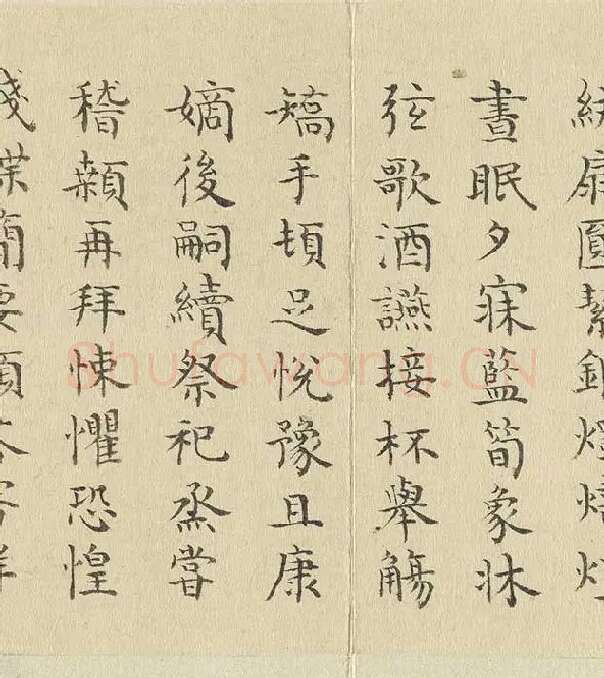 紈扇圓絜銀燭煒煌
晝眠夕寐藍筍象牀
弦歌酒讌接杯舉觴
矯手頓足悅豫且康
嫡後嗣續祭祀烝嘗
稽顙再拜悚懼恐惶
牋牒簡要顧答審詳
Shufawang.CN